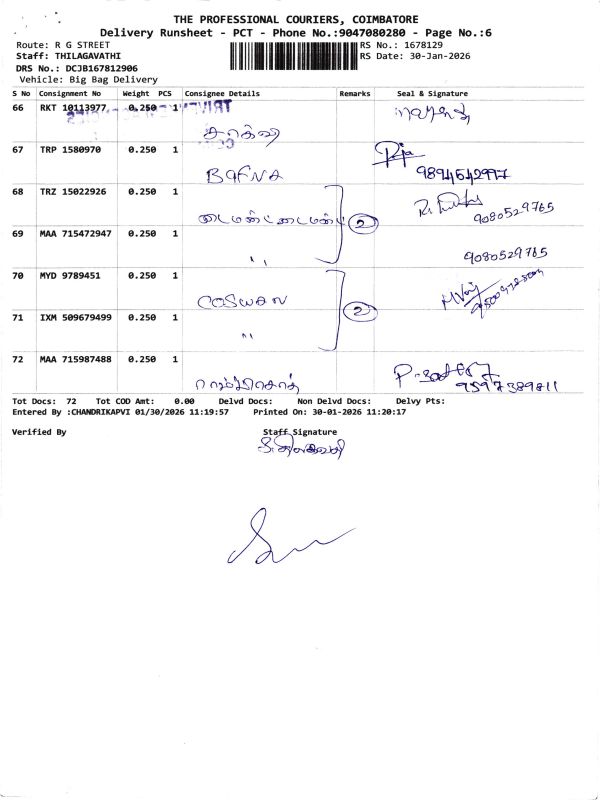 THE PROFESSIONAL COURIERS, COIMBATORE
Delivery Runsheet - PCT - Phone No.:9047080280 - Page No.:6
Route: R G STREET
RS No.: 1678129
Staff: THILAGAVATHI
RS Date: 30-Jan-2026
DRS No.: DCJB167812906
Vehicle: Big Bag Delivery
S No Consignment No Weight PCS Consignee Details Remarks Seal & Signature
66 RKT 10113977 0.250 1
67 TRP 1580970 0.250 1
BAFNA 9894542997
68 TRZ 15022926 0.250 1
2 9080529765
69 MAA 715472947 0.250 1
" 9080529765
70 MYD 9789451 0.250 1
COSWAN 2
71 IXM 509679499 0.250 1
"
72 MAA 715987488 0.250 1
9597389811
Tot Docs: 72 Tot COD Amt: 0.00 Delvd Docs: Non Delvd Docs: Delvy Pts:
Entered By :CHANDRIKAPVI 01/30/2026 11:19:57 Printed On: 30-01-2026 11:20:17
Verified By Staff Signature